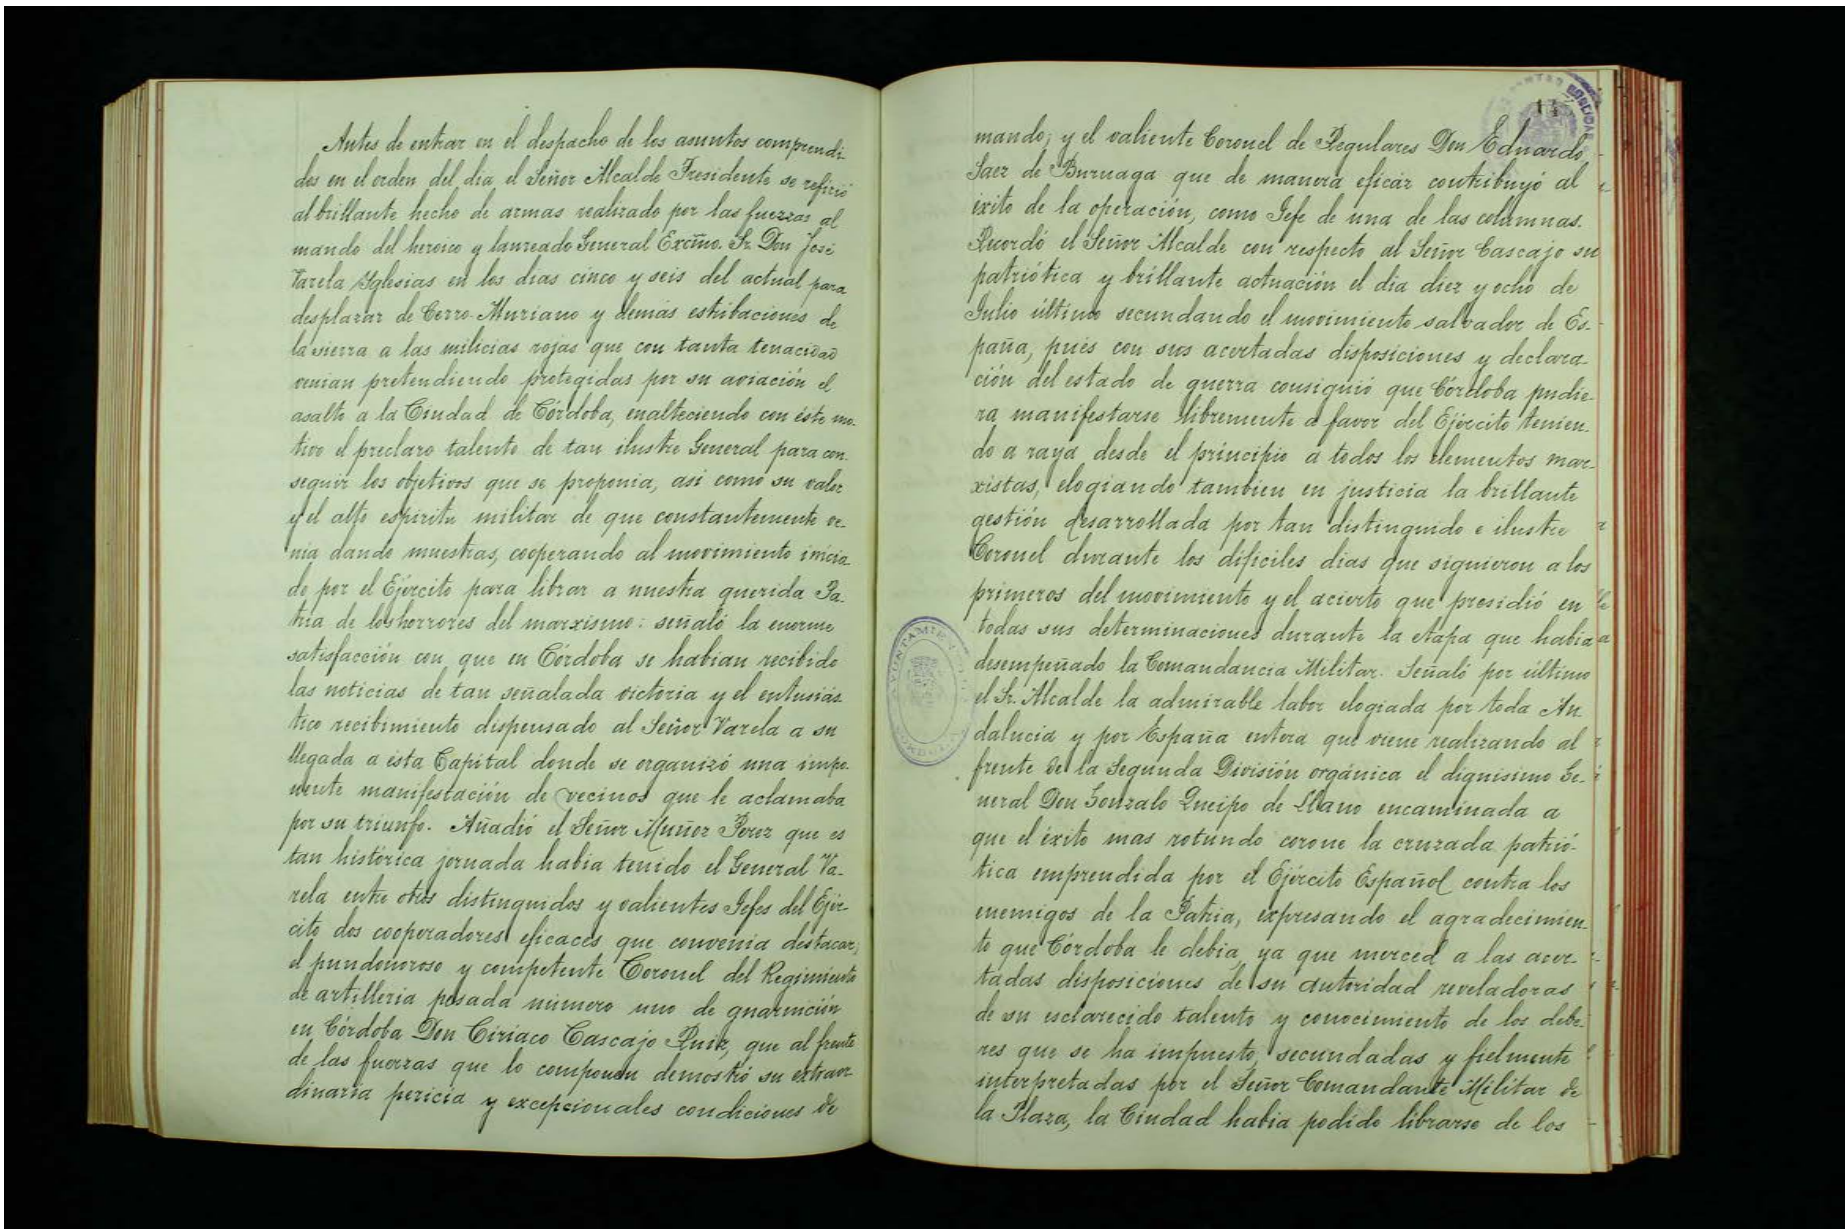 Antes de entrar en el despacho de los asuntos comprendi-
dos en el orden del dia el Señor Alcalde Presidente se refirió
al brillante hecho de armas realizado por las fuerzas al
mando del heroico y laureado General Excmo. Sr. Don José
Varela Yglesias en los dias cinco y seis del actual para
desplazar de Cerro-Muriano y demás estribaciones de
la sierra a las milicias rojas que con tanta tenacidad
venian pretendiendo protegidas por su aviación el
asalto a la Ciudad de Córdoba, enalteciendo con éste mo-
tivo el preclaro talento de tan ilustre General para con-
seguir los objetivos que se proponia, asi como su valor
y el alto espiritu militar de que constantemente ve-
nia dando muestras, cooperando al movimiento inicia-
do por el Ejército para librar a nuestra querida Pa-
tria de los horrores del marxismo: señaló la enorme
satisfacción con que en Córdoba se habian recibido
las noticias de tan señalada victoria y el entusiás-
tico recibimiento dispensado al Señor Varela a su
llegada a ésta Capital donde se organizó una impo-
nente manifestación de vecinos que le aclamaba
por su triunfo. Añadió el Señor Muñoz Perez que es
tan histórica jornada habia tenido el General Va-
rela entre otros distinguidos y valientes Jefes del Ejér-
cito dos cooperadores eficaces que convenia destacar;
el pundonoroso y competente Coronel del Regimiento
de artilleria pesada número uno de guarnición
en Córdoba Don Ciriaco Cascajo Ruiz, que al frente
de las fuerzas que lo componen demostró su extraor-
dinaria pericia y excepcionales condiciones de
mando; y el valiente Coronel de Regulares Don Eduardo
Saez de Buruaga que de manera eficáz contribuyó al
éxito de la operación, como Jefe de una de las columnas.
Recordó el Señor Alcalde con respecto al Señor Cascajo su
patriótica y brillante actuación el dia diez y ocho de
Julio último secundando el movimiento salvador de Es-
paña, pués con sus acertadas disposiciones y declara-
ción del estado de guerra consiguió que Córdoba pudie-
ra manifestarse libremente a favor del Ejército tenien-
do a raya desde el principio a todos los elementos mar-
xistas, elogiando tambien en justicia la brillante
gestión desarrollada por tan distinguido e ilustre
Coronel durante los dificiles dias que siguieron a los
primeros del movimiento y el acierto que presidió en
todas sus determinaciones durante la etapa que habia
desempeñado la Comandancia Militar. Señaló por último
el Sr. Alcalde la admirable labor elogiada por toda An-
dalucia y por España entera que viene realizando al
frente de la Segunda División orgánica el dignisimo Ge-
neral Don Gonzalo Queipo de Llano encaminada a
que el éxito mas rotundo corone la cruzada patrió-
tica emprendida por el Ejército Español contra los
enemigos de la Patria, expresando el agradecimien-
to que Córdoba le debia, ya que merced a las acer-
tadas disposiciones de su autoridad reveladoras
de su esclarecido talento y conocimiento de los debe-
res que se ha impuesto, secundadas y fielmente
interpretadas por el Señor Comandante Militar de
la Plaza, la Ciudad habia podido librarse de los